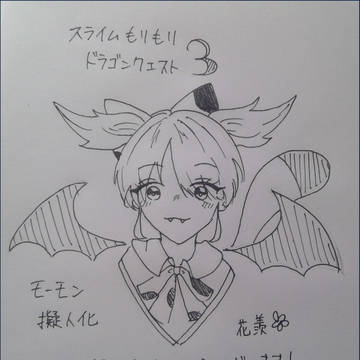 スライムもりもり
ドラゴンクエスト3
モーモン
擬人化
花羨